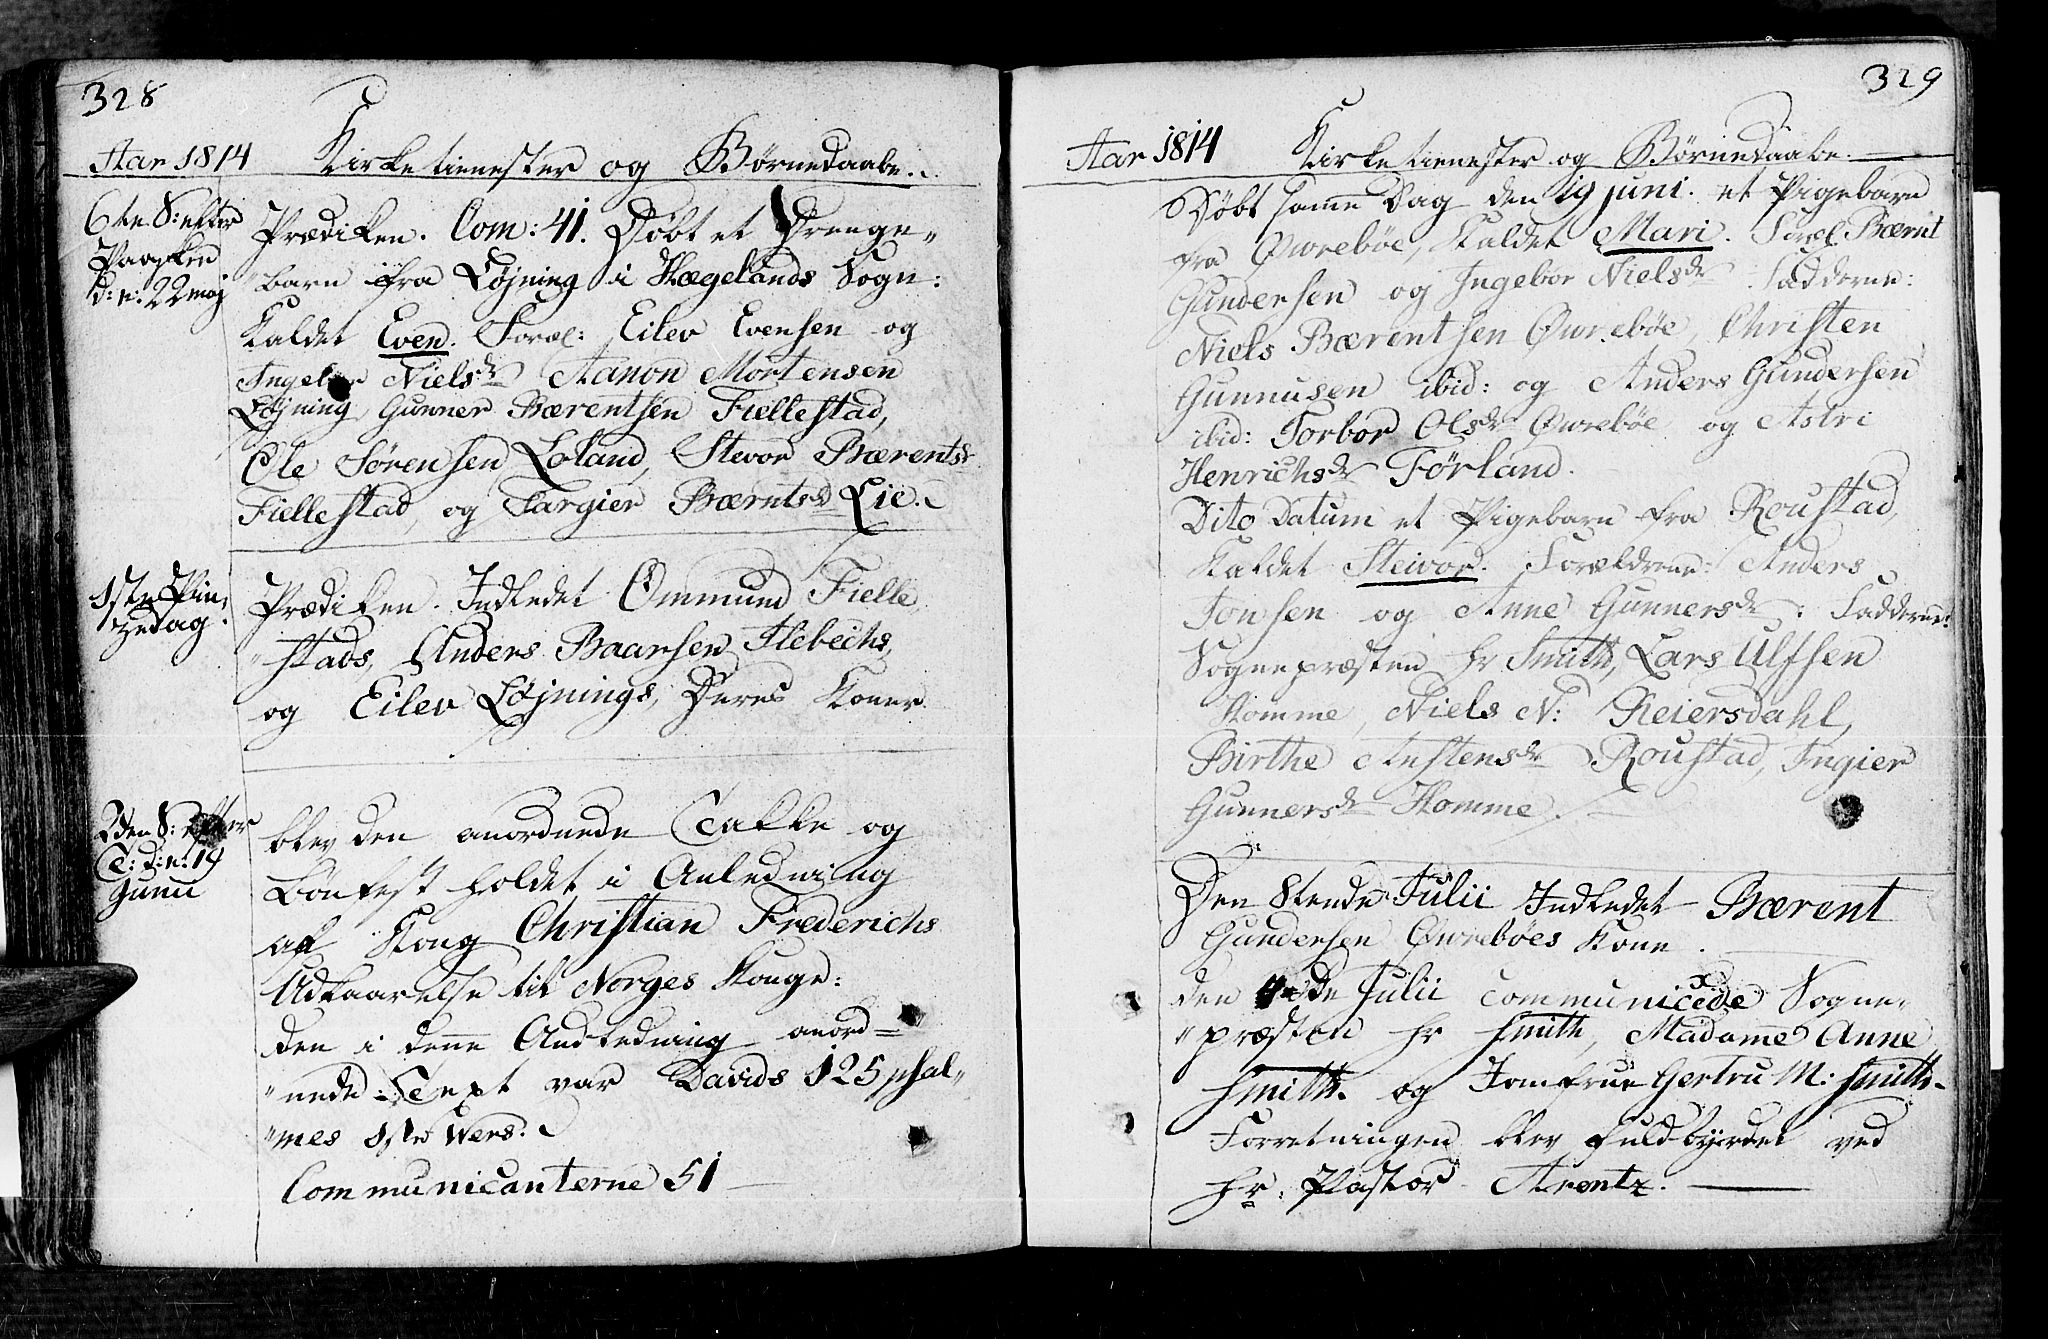 328
Aar 1814 Kirketienester og Børnedaabe.
6te S: efter
Paaske
d: n: 22 maj
Prædiken. Com: 41. Døbt et Drenge-
barn fra Løjning i Hægelands Sogn:
Kaldet Even. Foræl: Eilev Evensen og
Ingebor Nielsdr Aanon Mortensen
Løjning, Gunner Bærentsen Fiellestad,
Ole Sørensen Loland, Stevor Bærentsdr
Fiellestad, og Targier Bærntsd Lie.
1ste Pin,
zedag.
Prædiken. Indledet Ommund Fielle
stads, Anders Baarsen Flebechs,
og Eilev Løjnings, Deres Koner.
2den S: efter
T: d: n: 19
Junii
blev den anordnede Takke og
Bönfest holdet i Anledning
af Kong Christian Frederichs
Udkaarelse til Norges Konge:
den i denne Andledning anord-
nede Text var Davids 125 psal-
mes 1ste Wers.
Communicanterne 51
329
Aar 1814 Kirketienester og Børnedaabe.
Døbt samme Dag den 19 juni. et Pigebarn
fra Øvrebøe, Kaldet Mari. Foræl. Bærnt
Gundersen og Ingebor Nielsdr Fadderne:
Niels Bærentsen Øvrebøe, Christen
Gunnusen ibid: og Anders Gundersen
ibid: Torbor Olsdr Øvrebøe og Astri
Henrichsdr Førland.
Dito Datum et Pigebarn fra Roustad,
Kaldet Steivor. Forældrene: Anders
Jonsen og Anne Gunnersdr: Fadderne:
Sognepræsten Hr Smith, Lars Ulfsen
Homme, Niels N: Reiersdahl,
Birthe Anstensdr Roustad, Ingier
Gunnersdr Homme.
Den 8tende Julii Indledet Bærent
Gundersen Øvrebøes Kone.
den de Julii communicede Sogne-
præsten Hr Smith, Madame Anne
Smith. og Jomfrue Gertru M: Smith.
Forretningen blev fuldbyrdet ved
Hr: Pastor Arentz.